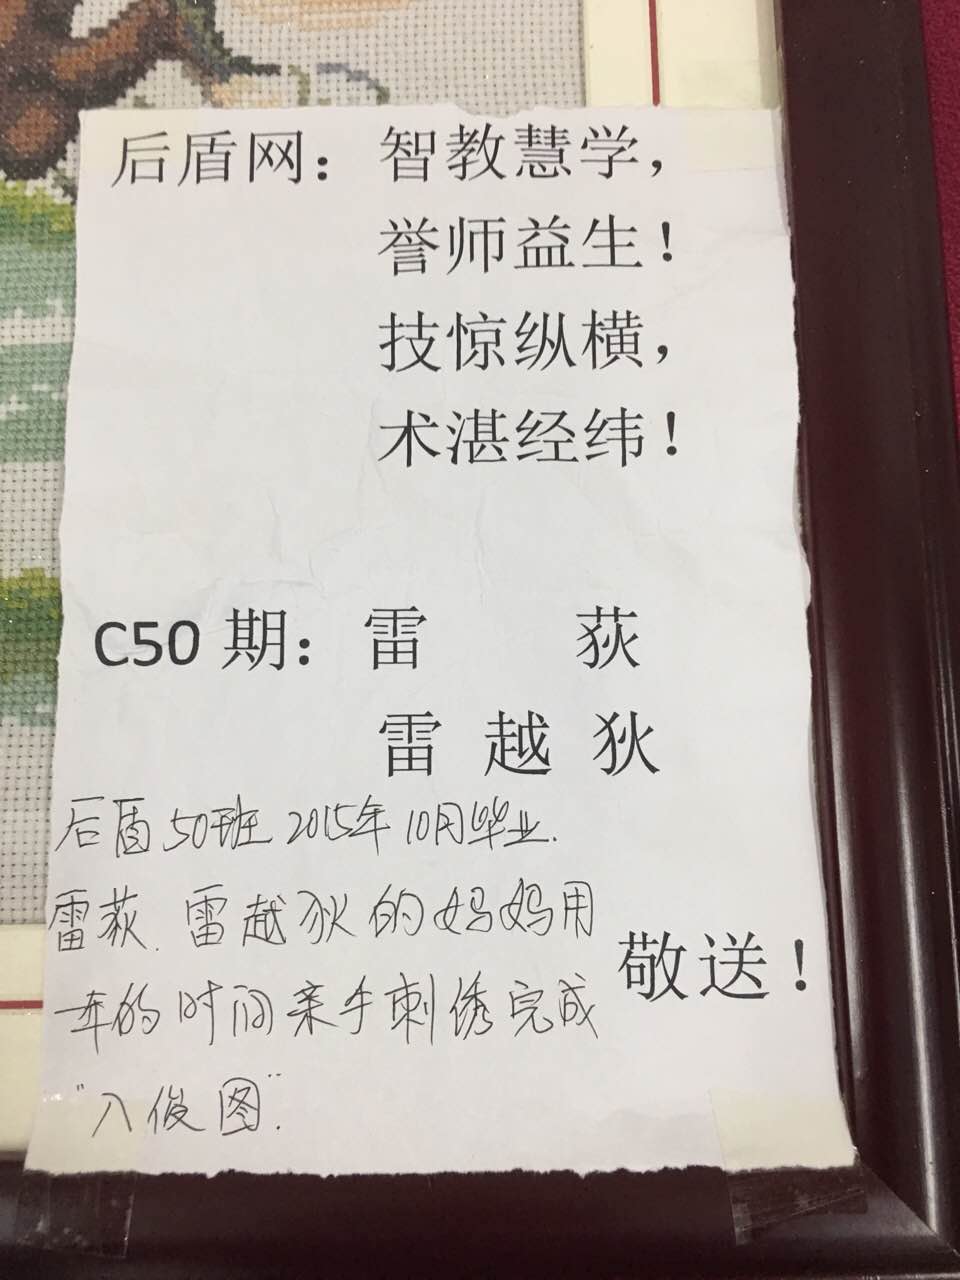 后盾网：智教慧学，
誉师益生！
技惊纵横，
术湛经纬！
C50期：雷 荻
雷 越 狄
后盾50班2015年10月毕业.
雷荻.雷越狄的妈妈用
一年的时间亲手刺绣完成
"八俊图".
敬送！